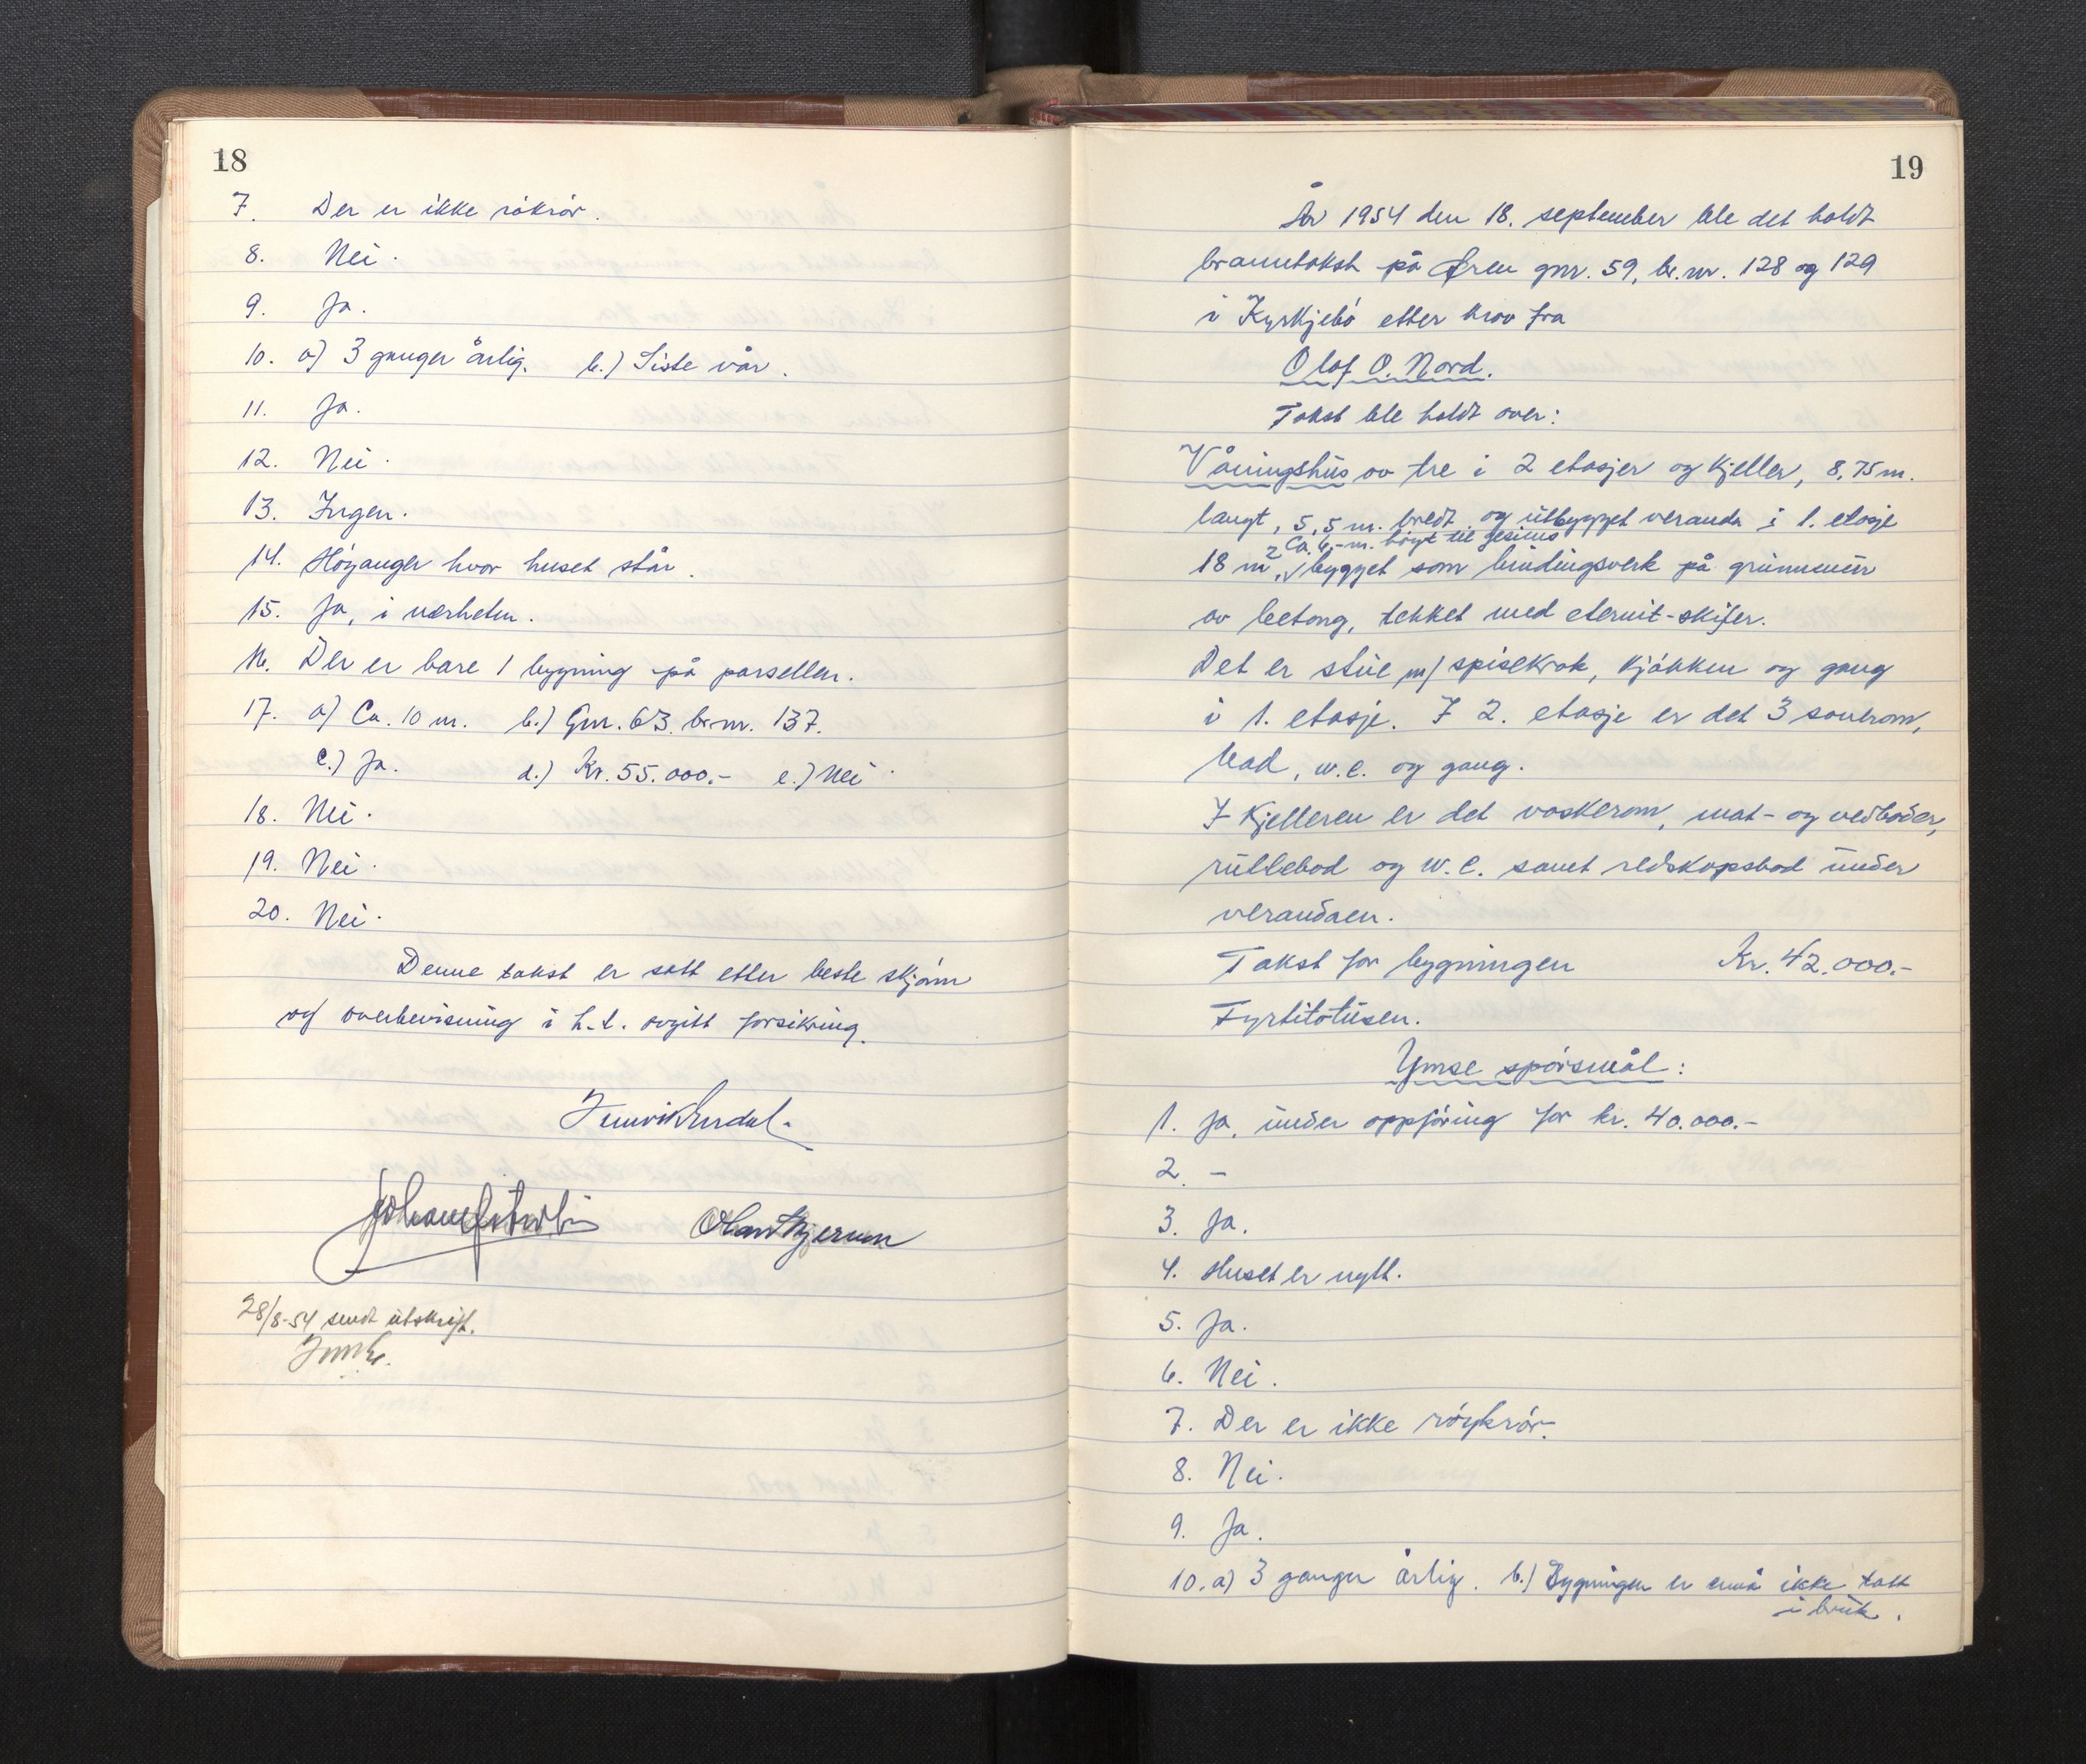 18
7. Der er ikke rökrör.
8. Nei.
9. Ja.
10. a) 3 ganger årlig. b.) Siste vår.
11. Ja.
12. Nei.
13. Ingen.
14. Höyanger hvor huset står.
15. Ja, i nærheten.
16. Der er bare 1 bygning på parsellen.
17. a) Ca. 10 m. b.) Gnr. 63. br.nr. 137.
c.) Ja. d.) Kr. 55.000.- e.) Nei.
18. Nei.
19. Nei.
20. Nei.
Denne takst er satt etter beste skjönn
og overbevisning i h.t. avgitt forsikring.
28/8-54 sendt utskrift.
19
År 1954 den 18. september ble det holdt
branntakst på Øren gnr. 59, br.nr. 128 og 129
i Kyrkjebö etter krav fra
Olaf O. Nord.
Takst ble holdt over:
Våningshus av tre i 2 etasjer og kjeller, 8,75 m.
langt, 5,5 m. bredt og utbygget veranda i 1. etasje
ca. 6,- m. höyt til gesims
18 m2, √ bygget som bindingsverk på grunnmur
av betong, tekket med eternit-skifer.
Det er stue m/ spisekrok, kjökken og gang
i 1. etasje. I 2. etasje er det 3 soverom,
bad, w.c. og gang.
I kjelleren er det vaskerom, mat- og vedboder,
rullebod og w.c. samt redskapsbod under
verandaen.
Takst for bygningen Kr. 42.000.-
Fyrtitotusen.
Ymse spörsmål:
1. Ja, under oppföring for kr. 40.000.-
2. -
3. Ja.
4. Huset er nytt.
5. Ja.
6. Nei.
7. Der er ikke röykrör.
8. Nei.
9. Ja.
10. a) 3 ganger årlig. b.) Bygningen er ennå ikke tatt
i bruk.